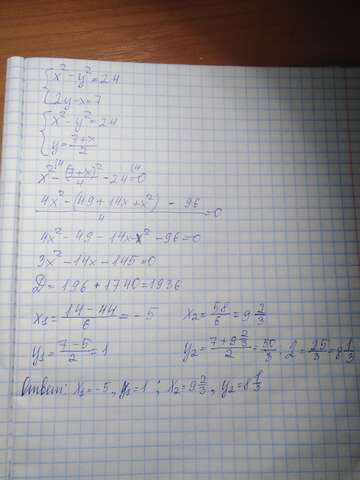 {x² - y² = 24
{2y - x = 7
{x² - y² = 24
{y = (7+x)/2
x² - (7+x)²/4 - 24 = 0
(4x² - (49 + 14x + x²) - 96)/4 = 0
4x² - 49 - 14x - x² - 96 = 0
3x² - 14x - 145 = 0
D = 196 + 1740 = 1936
x₁ = (14 - 44)/6 = -5    x₂ = 58/6 = 9 2/3
y₁ = (7-5)/2 = 1    y₂ = (7 + 9 2/3)/2 = 50/3 : 2 = 25/3 = 8 1/3
Ответ: x₁ = -5, y₁ = 1 ; x₂ = 9 2/3, y₂ = 8 1/3